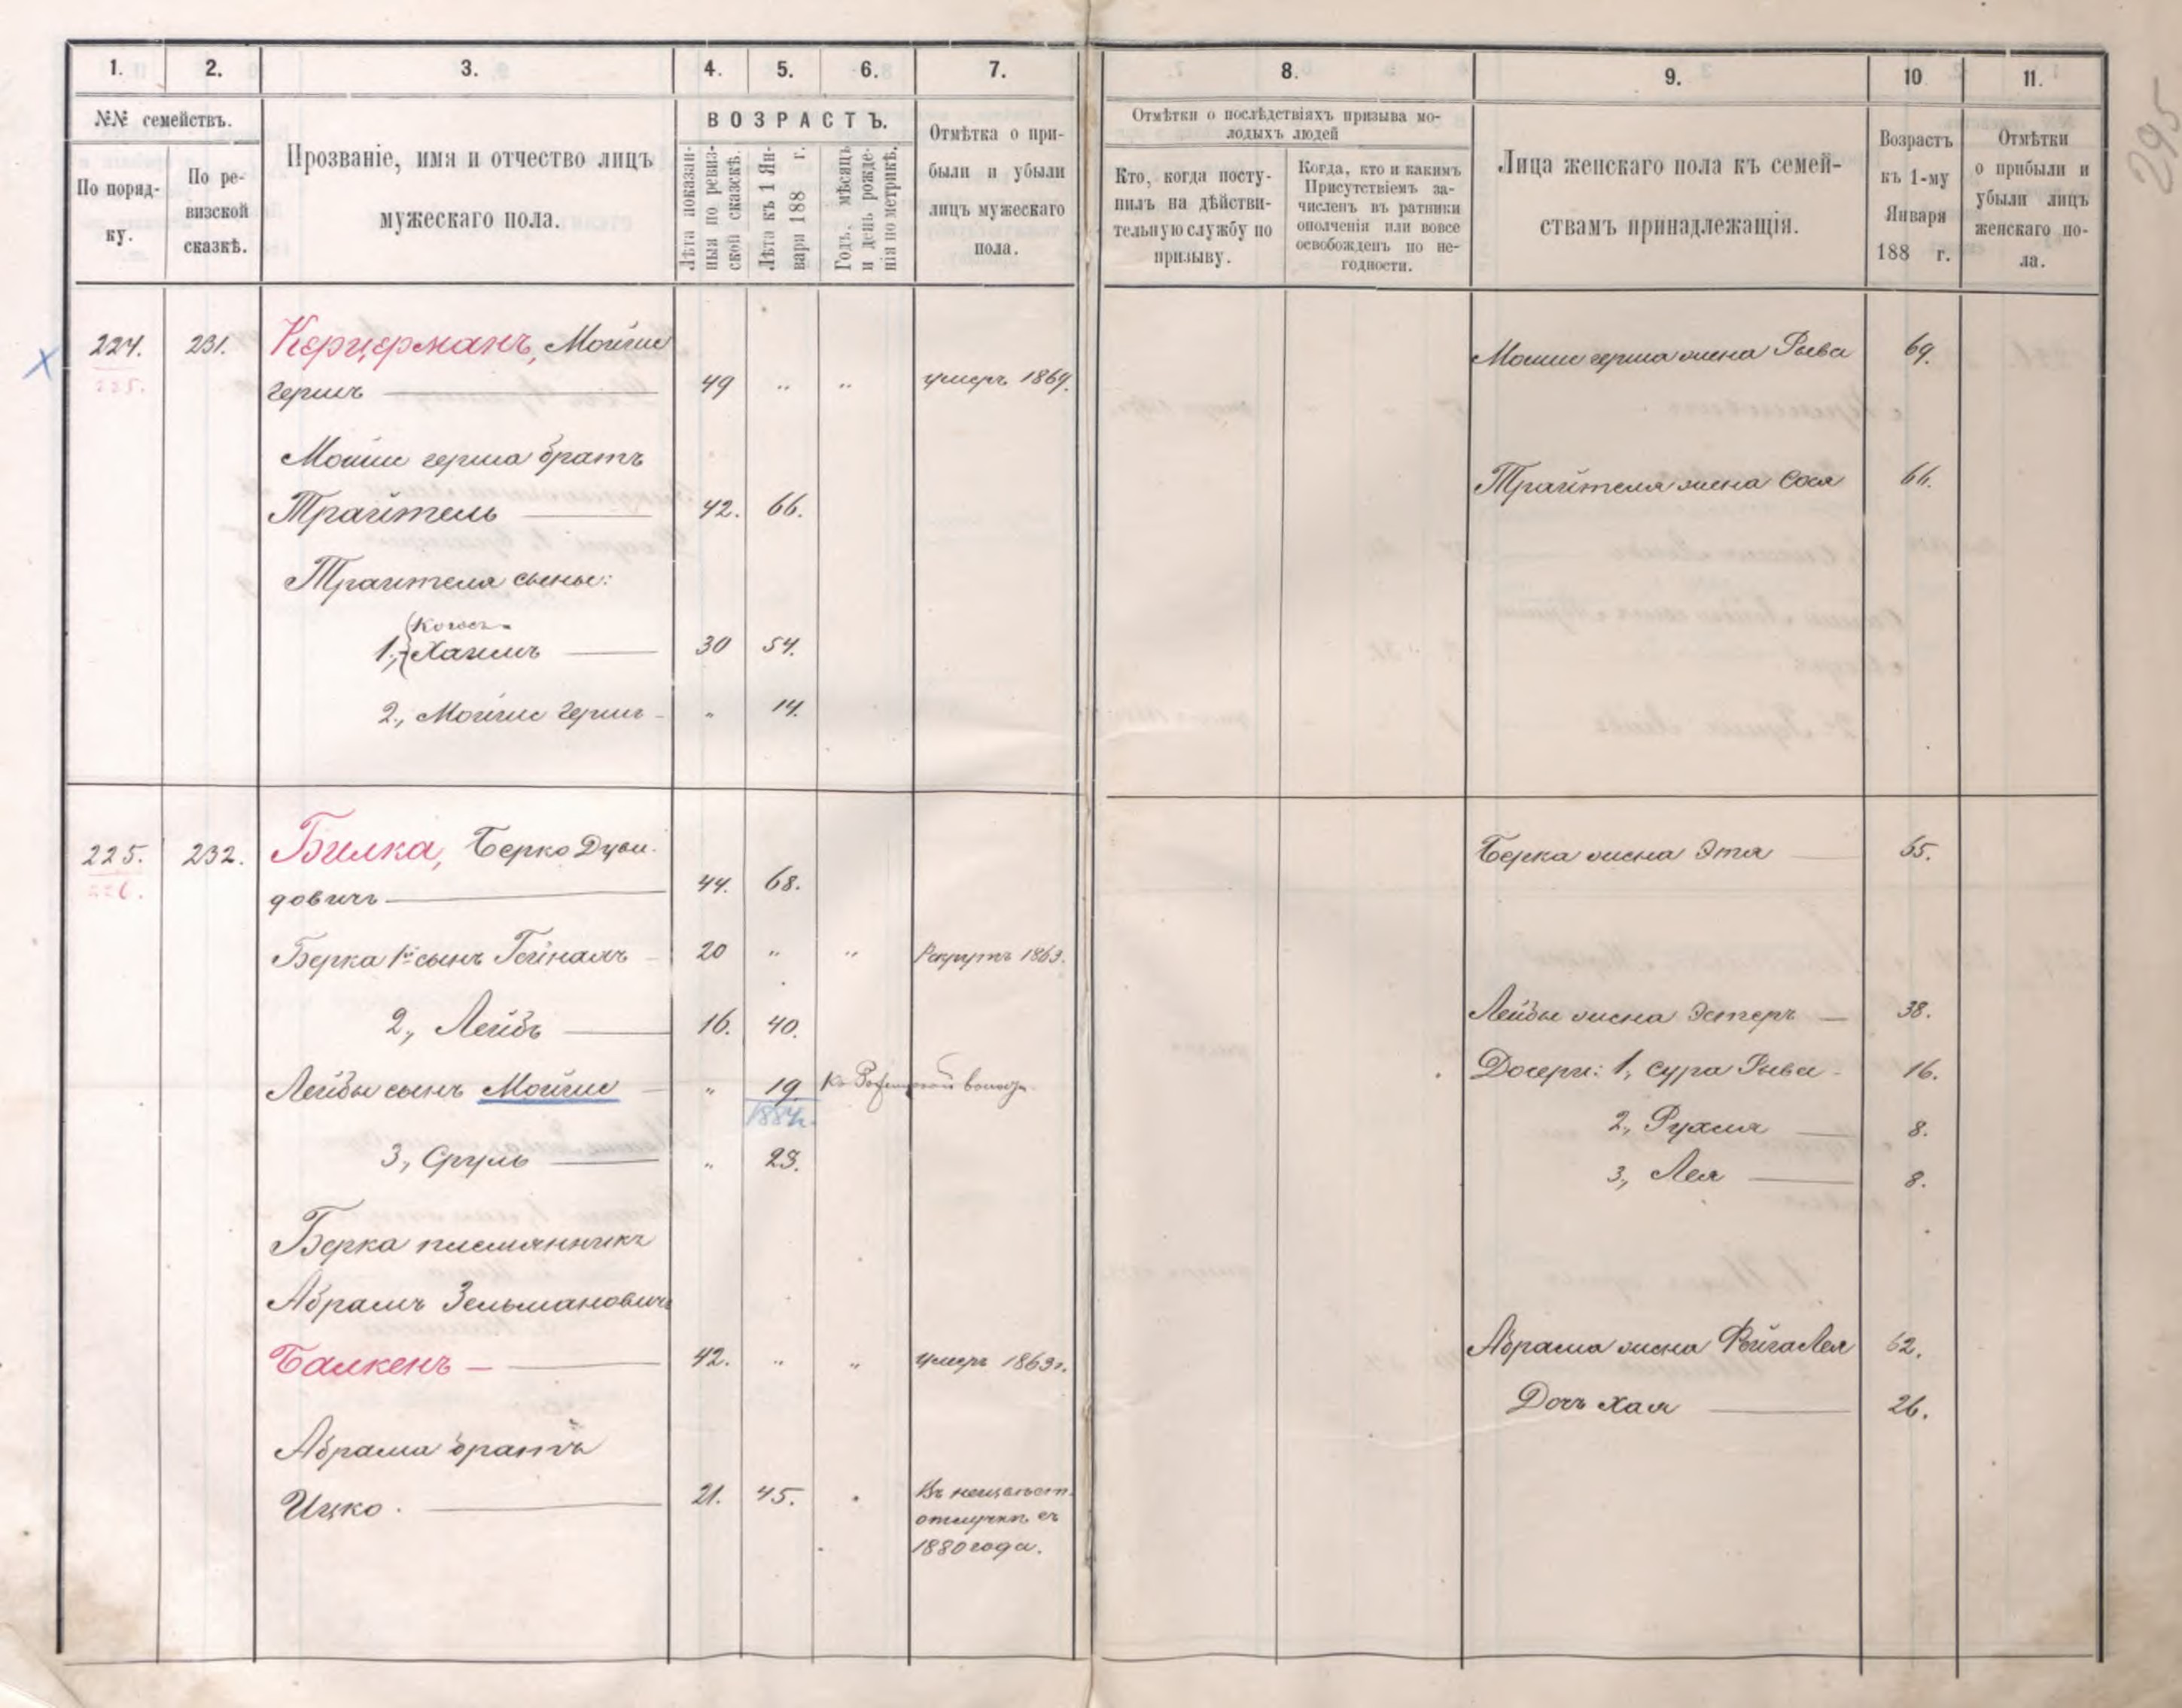 295
1.
2.
3.
4.
5.
6.
7.
8.
9.
10
11.
№№ семействъ.
По поряд-
ку.
По ре-
визской
сказкѣ.
Прозваніе, имя и отчество лицъ
мужескаго пола.
ВОЗРАСТЪ.
Лѣта показан-
ныя по ревиз-
ской сказкѣ.
Лѣта къ 1 Ян-
варя 188 г.
Годъ, мѣсяцъ
и день рожде-
нія по метрикѣ.
Отмѣтка о при-
были и убыли
лицъ мужескаго
пола.
Отмѣтки о послѣдствіяхъ призыва мо-
лодыхъ людей
Кто, когда посту-
пилъ на дѣйстви-
тельную службу по
призыву.
Когда, кто и какимъ
Присутствіемъ за-
численъ въ ратники
ополченія или вовсе
освобожденъ по не-
годности.
Лица женскаго пола къ семей-
ствамъ принадлежащія.
Возрастъ
къ 1-му
Января
188 г.
Отмѣтки
о прибыли и
убыли лицъ
женскаго по-
ла.
224. 231. Керцерманъ, Мойше
225.
Гершъ 49 " " умеръ 1869.
Мошки герша жена Рыва 69.
Мошки герша братъ
Трайтель 42. 66.
Трайтеля жена Сося 66.
Трайтеля сыны:
1., Хаимъ 30 54.
2., Мойше Гершъ " 14.
225. 232. Билка, Берко Дуви-
226.
довичъ 44. 68.
Берка жена Этя 65.
Берка 1й сынъ Гейнахъ 20 " " Рекрутъ 1863.
2., Лейбъ 16. 40.
Лейбы жена Эстеръ 38.
Лейбы сынъ Мойше " 19.
1884.
Дочери: 1, Сура Рыва 16.
2, Рухля 8.
3, Лея 8.
3, Сруль " 23.
Берка племянникъ
Абрамъ Зельмановичъ
Балкенъ 42. " " умеръ 1863г.
Абрама жена Фейга Лея 62.
Дочь Хая 26.
Абрама братъ
Ицко. 21. 45.
Въ неизвѣст.
отлучкѣ съ
1880 года.